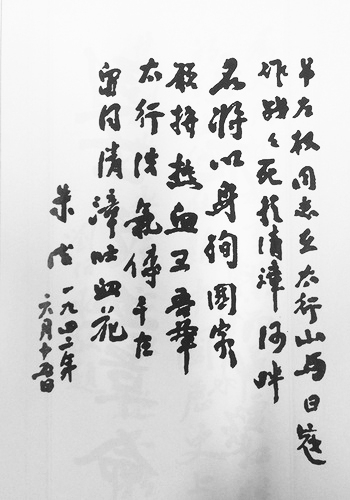 吊左权同志在太行山与日寇
作战々死於清漳河畔
名将以身殉國家
願拼热血卫吾華
太行浩氣傳千古
留得清漳吐血花
朱德 一九四二年
六月十五日